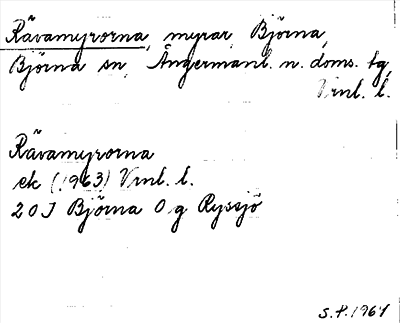 Rävamyrorna, myrar Björna,
Björna sn, Ångermanl. n. doms. tg,
Vrnl. l.
Rävamyrorna
ek (1963) Vrnl. l.
20 J Björna 0 g Ryssjö
S.P. 1964